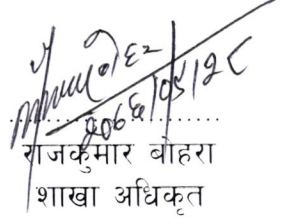 २०७६/०५/२८
राजकुमार बोहरा
शाखा अधिकृत